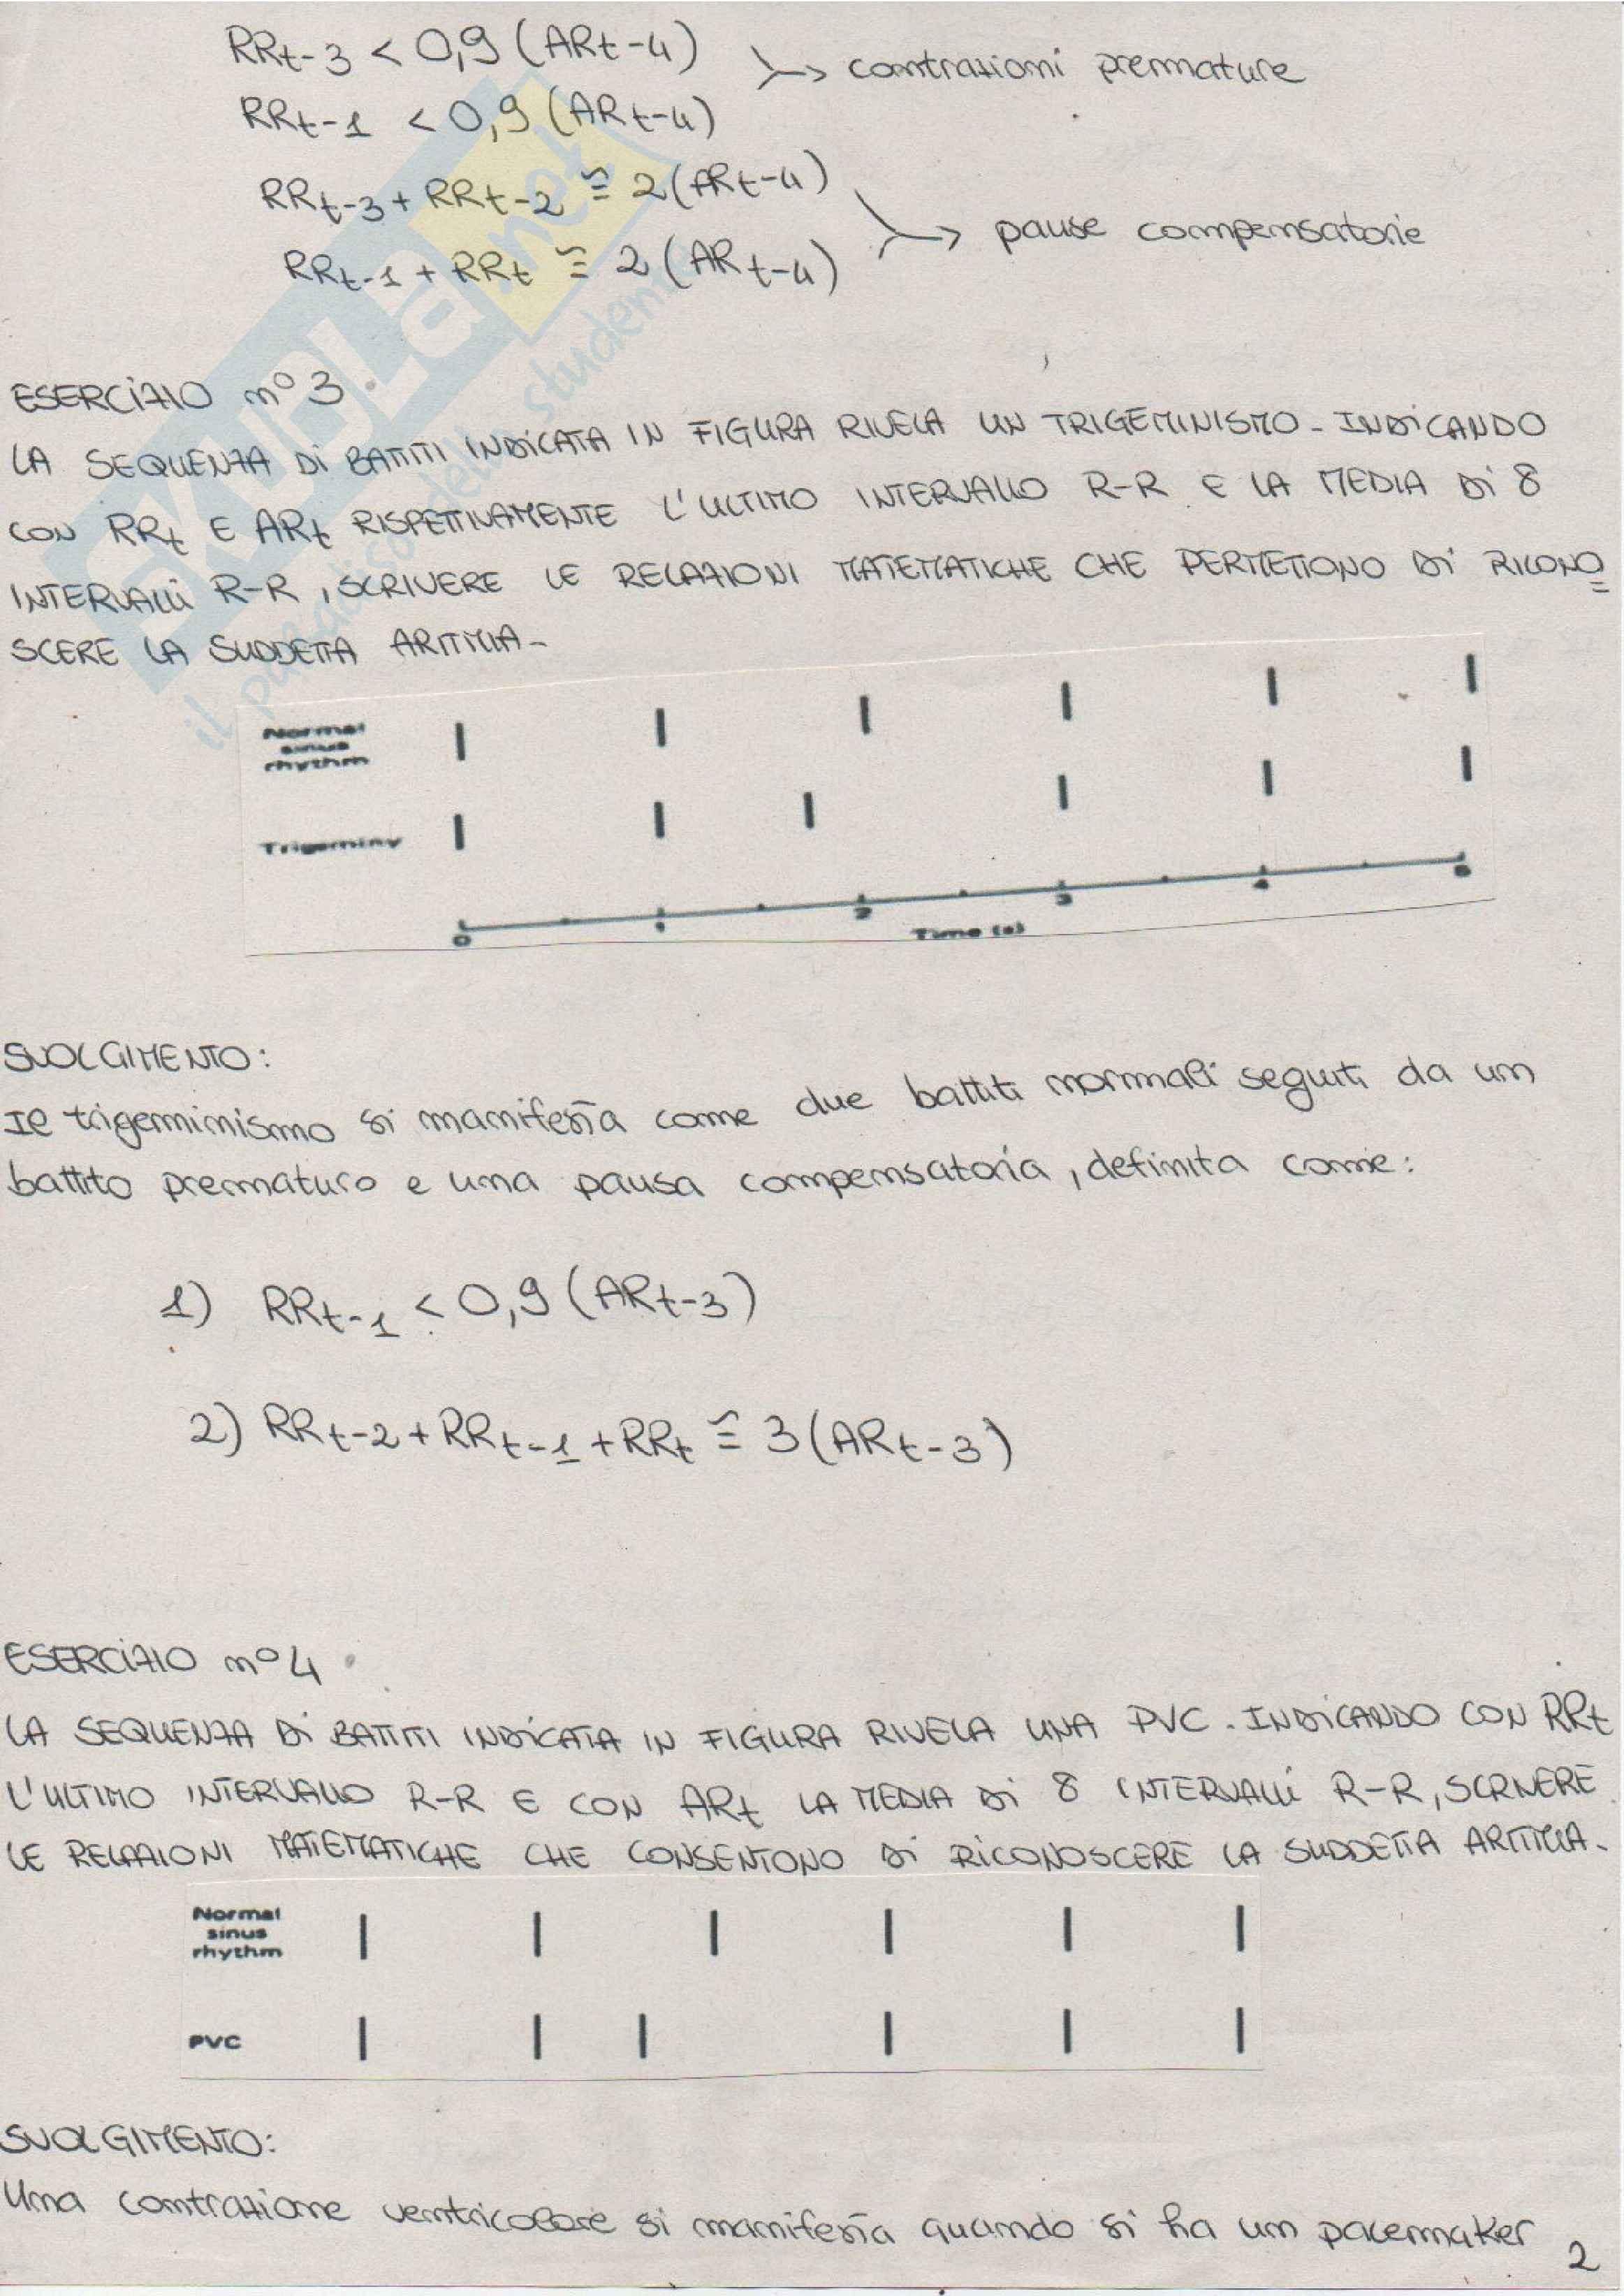 RRt-3 < 0,9 (ARt-4)
RRt-1 < 0,9 (ARt-4)
→ contrazioni premature
RRt-3 + RRt-2 ≅ 2 (ARt-4)
RRt-1 + RRt ≅ 2 (ARt-4)
→ pause compensatorie
ESERCIZIO n° 3
LA SEQUENZA DI BATTITI INDICATA IN FIGURA RIVELA UN TRIGEMINISMO - INDICANDO
CON RRt E ARt RISPETTIVAMENTE L'ULTIMO INTERVALLO R-R E LA MEDIA DI 8
INTERVALLI R-R, SCRIVERE LE RELAZIONI MATEMATICHE CHE PERMETTONO DI RICONO=
SCERE LA SUDDETTA ARITMIA-
Normal
sinus
rhythm
Trigeminy
0 1 2 3 4 5
Time (s)
SVOLGIMENTO:
Il trigeminismo si manifesta come due battiti normali seguiti da un
battito prematuro e una pausa compensatoria, definita come:
1) RRt-1 < 0,9 (ARt-3)
2) RRt-2 + RRt-1 + RRt ≅ 3 (ARt-3)
ESERCIZIO n° 4
LA SEQUENZA DI BATTITI INDICATA IN FIGURA RIVELA UNA PVC. INDICANDO CON RRt
L'ULTIMO INTERVALLO R-R E CON ARt LA MEDIA DI 8 INTERVALLI R-R, SCRIVERE
LE RELAZIONI MATEMATICHE CHE CONSENTONO DI RICONOSCERE LA SUDDETTA ARITMIA.
Normal
sinus
rhythm
PVC
SVOLGIMENTO:
Una contrazione ventricolare si manifesta quando si ha un pacemaker
2